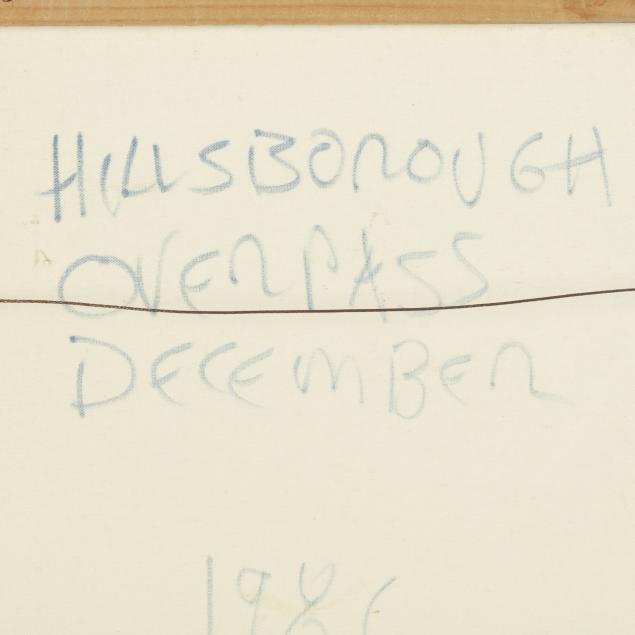 HILLSBOROUGH
OVERPASS
DECEMBER
1986